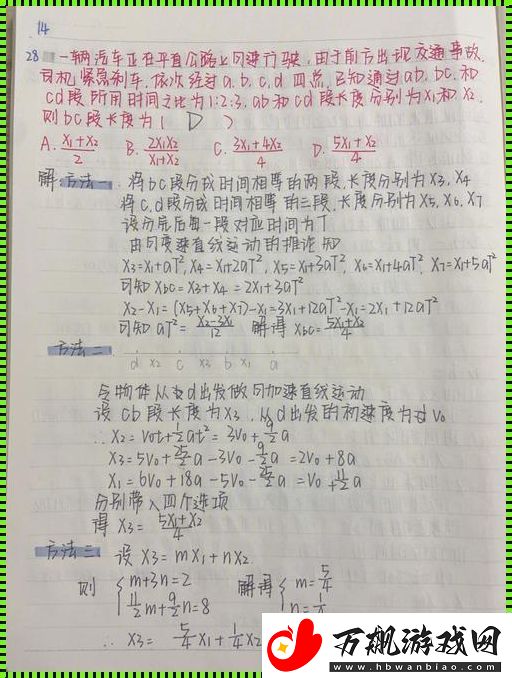 14
28 一辆汽车正在平直公路上匀速行驶,由于前方出现交通事故,
司机紧急刹车,依次经过a.b.c.d四点,已知通过ab,bc,和
cd段所用时间之比为1:2:3,ab和cd段长度分别为X₁和X₂.
则bc段长度为( D )
A. (X₁+X₂)/2 B. 2X₁X₂/(X₁+X₂) C. (3X₁+4X₂)/4 D. (5X₁+X₂)/4
解:方法一.将bc段分成时间相等的两段,长度分别为X₃,X₄
将c,d段分成时间相等的三段,长度分别为X₅,X₆,X₇
设分完后每一段对应时间为T
由匀变速直线运动的推论知
X₃=X₁+aT²,X₄=X₁+2aT²,X₅=X₁+3aT²,X₆=X₁+4aT²,X₇=X₁+5aT²
可知Xbc=X₃+X₄=2X₁+3aT²
X₂-X₁=(X₅+X₆+X₇)-X₁=3X₁+12aT²-X₁=2X₁+12aT²
可知aT²=(X₂-3X₁)/12 解得Xbc=(5X₁+X₂)/4
方法二
d X₂ c X₃ b X₁ a
令物体从d出发做匀加速直线运动
设cb段长度为X₃,从d出发的初速度为V₀
∴X₂=V₀t+½at²=3V₀+9/2a
X₃=5V₀+25/2a-3V₀-9/2a=2V₀+8a
X₁=6V₀+18a-5V₀-25/2a=V₀+11/2a
分别带入四个选项
得X₃=(5X₁+X₂)/4
方法三 设X₃=mX₁+nX₂
则 { m+3n=2 解得 { m=5/4
11/2m+9/2n=8 n=1/4
∴X₃=5/4X₁+1/4X₂
万飙游戏网
www.hbwanbiao.com